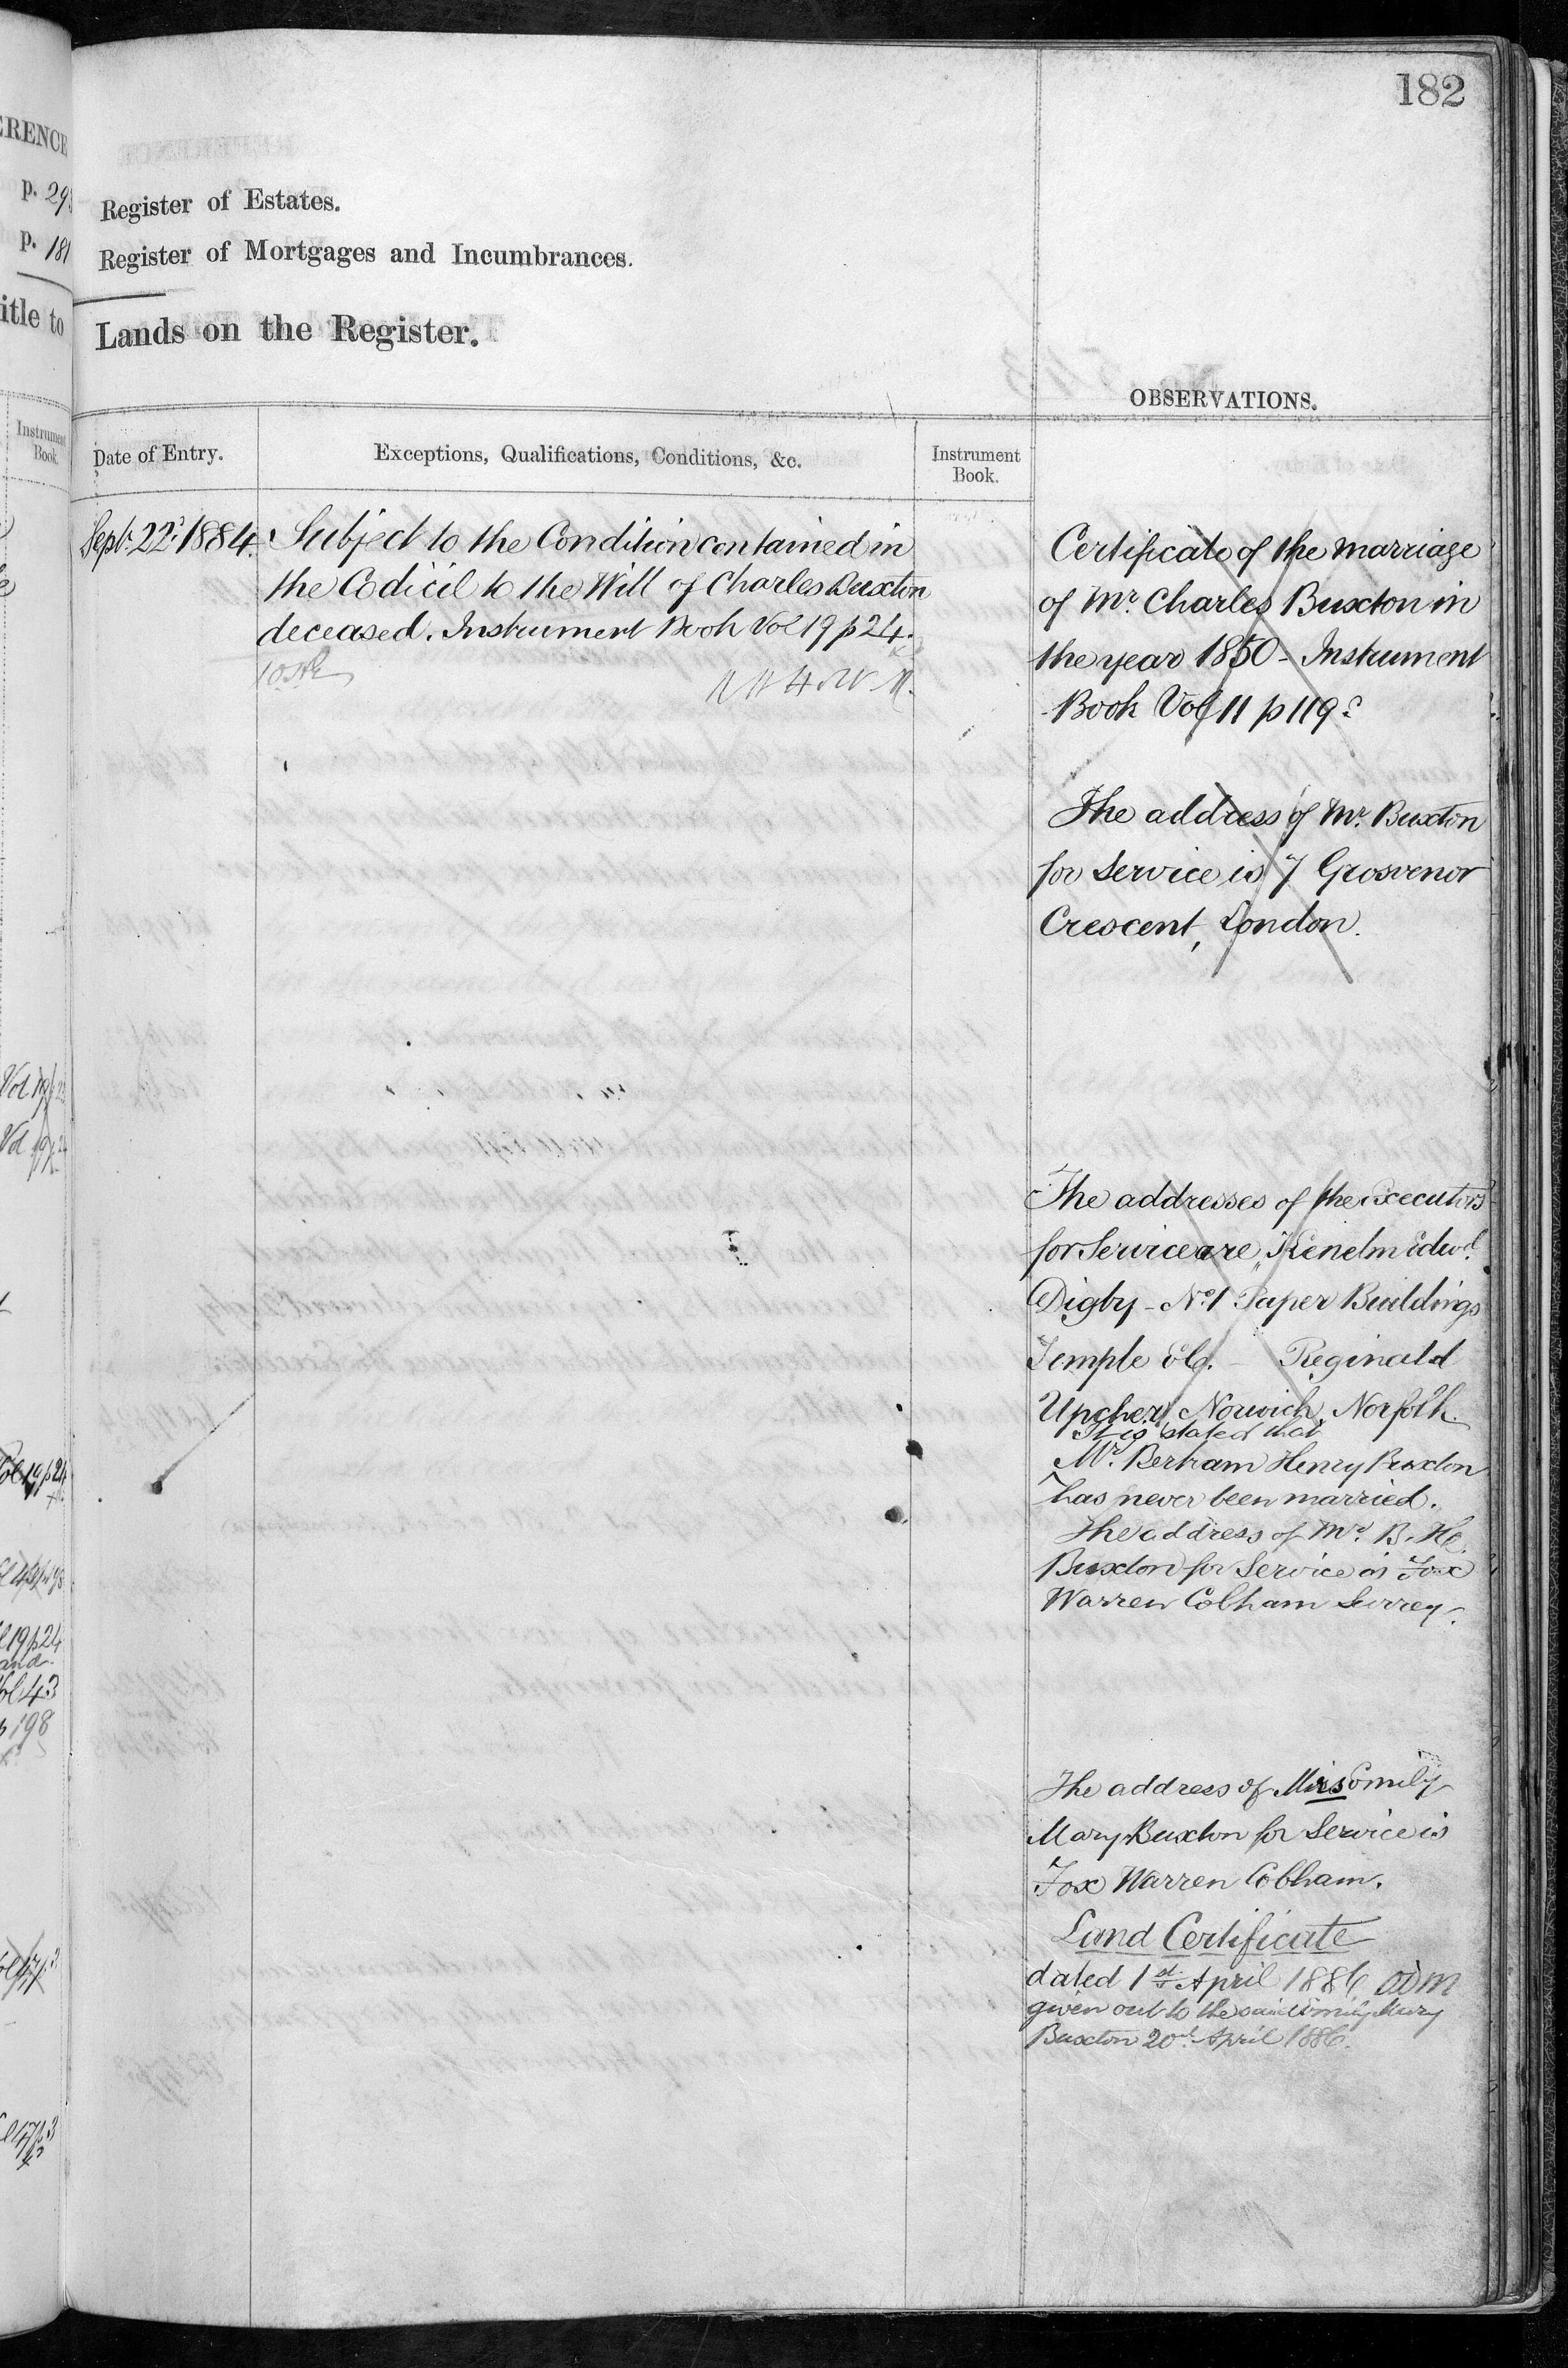 182
Register of Estates.
Register of Mortgages and Incumbrances.
Lands on the Register.
OBSERVATIONS.
Date of Entry.
Exceptions, Qualifications, Conditions, &c.
Instrument
Book.
Sept. 22d. 1884.
Subject to the Condition contained in
the Codicil to the Will of Charles Buxton
deceased. Instrument Book Vol 19 p 24.
Certificate of the marriage
of Mr. Charles Buxton in
the year 1850 - Instrument
Book Vol 11 p 119.
The address of Mr. Buxton
for Service is 7 Grosvenor
Crescent, London.
The addresses of the Executors
for Service are, Kenelm Edwd.
Digby - No. 1 Paper Buildings
Temple E.C. - Reginald
Upcher, Norwich, Norfolk.
It is stated that
Mr. Bertram Henry Buxton
has never been married.
The address of Mr. B. H.
Buxton for Service is Fox
Warren Cobham Surrey.
The address of Miss Emily
Mary Buxton for Service is
Fox Warren Cobham.
Land Certificate
dated 1st. April 1886
given out to the said Emily Mary
Buxton 20th. April 1886.
ERENCE
p. 293
p. 181
itle to
Instrument
Book.
l 19 p 24
and
Vol 43
p 198